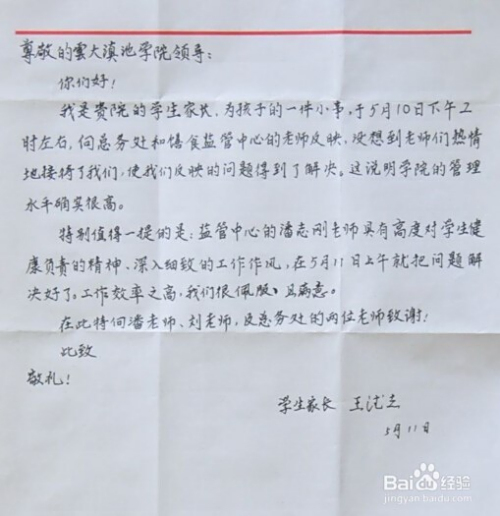 尊敬的雲大滇池学院领导：
你们好！
我是贵院的学生家长，为孩子的一件小事，于5月10日下午2
时左右，向总务处和膳食监管中心的老师反映，没想到老师们热情
地接待了我们，使我们反映的问题得到了解决。这说明学院的管理
水平确实很高。
特别值得一提的是：监管中心的潘志刚老师具有高度对学生健
康负责的精神、深入细致的工作作风，在5月11日上午就把问题解
决好了。工作效率之高，我们很佩服、且满意。
在此特向潘老师、刘老师，及总务处的两位老师致谢！
此致
敬礼！
学生家长 王
5月11日
Baidu经验
jingyan.baidu.com